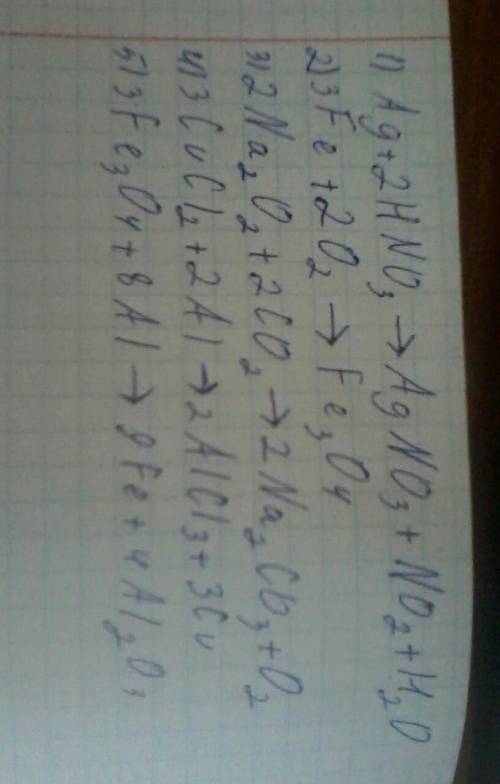 1) Ag+2HNO₃→AgNO₃+NO₂+H₂O
2) 3Fe+2O₂→Fe₃O₄
3) 2Na₂O₂+2CO₂→2Na₂CO₃+O₂
4) 3CuCl₂+2Al→2AlCl₃+3Cu
5) 3Fe₃O₄+8Al→9Fe+4Al₂O₃